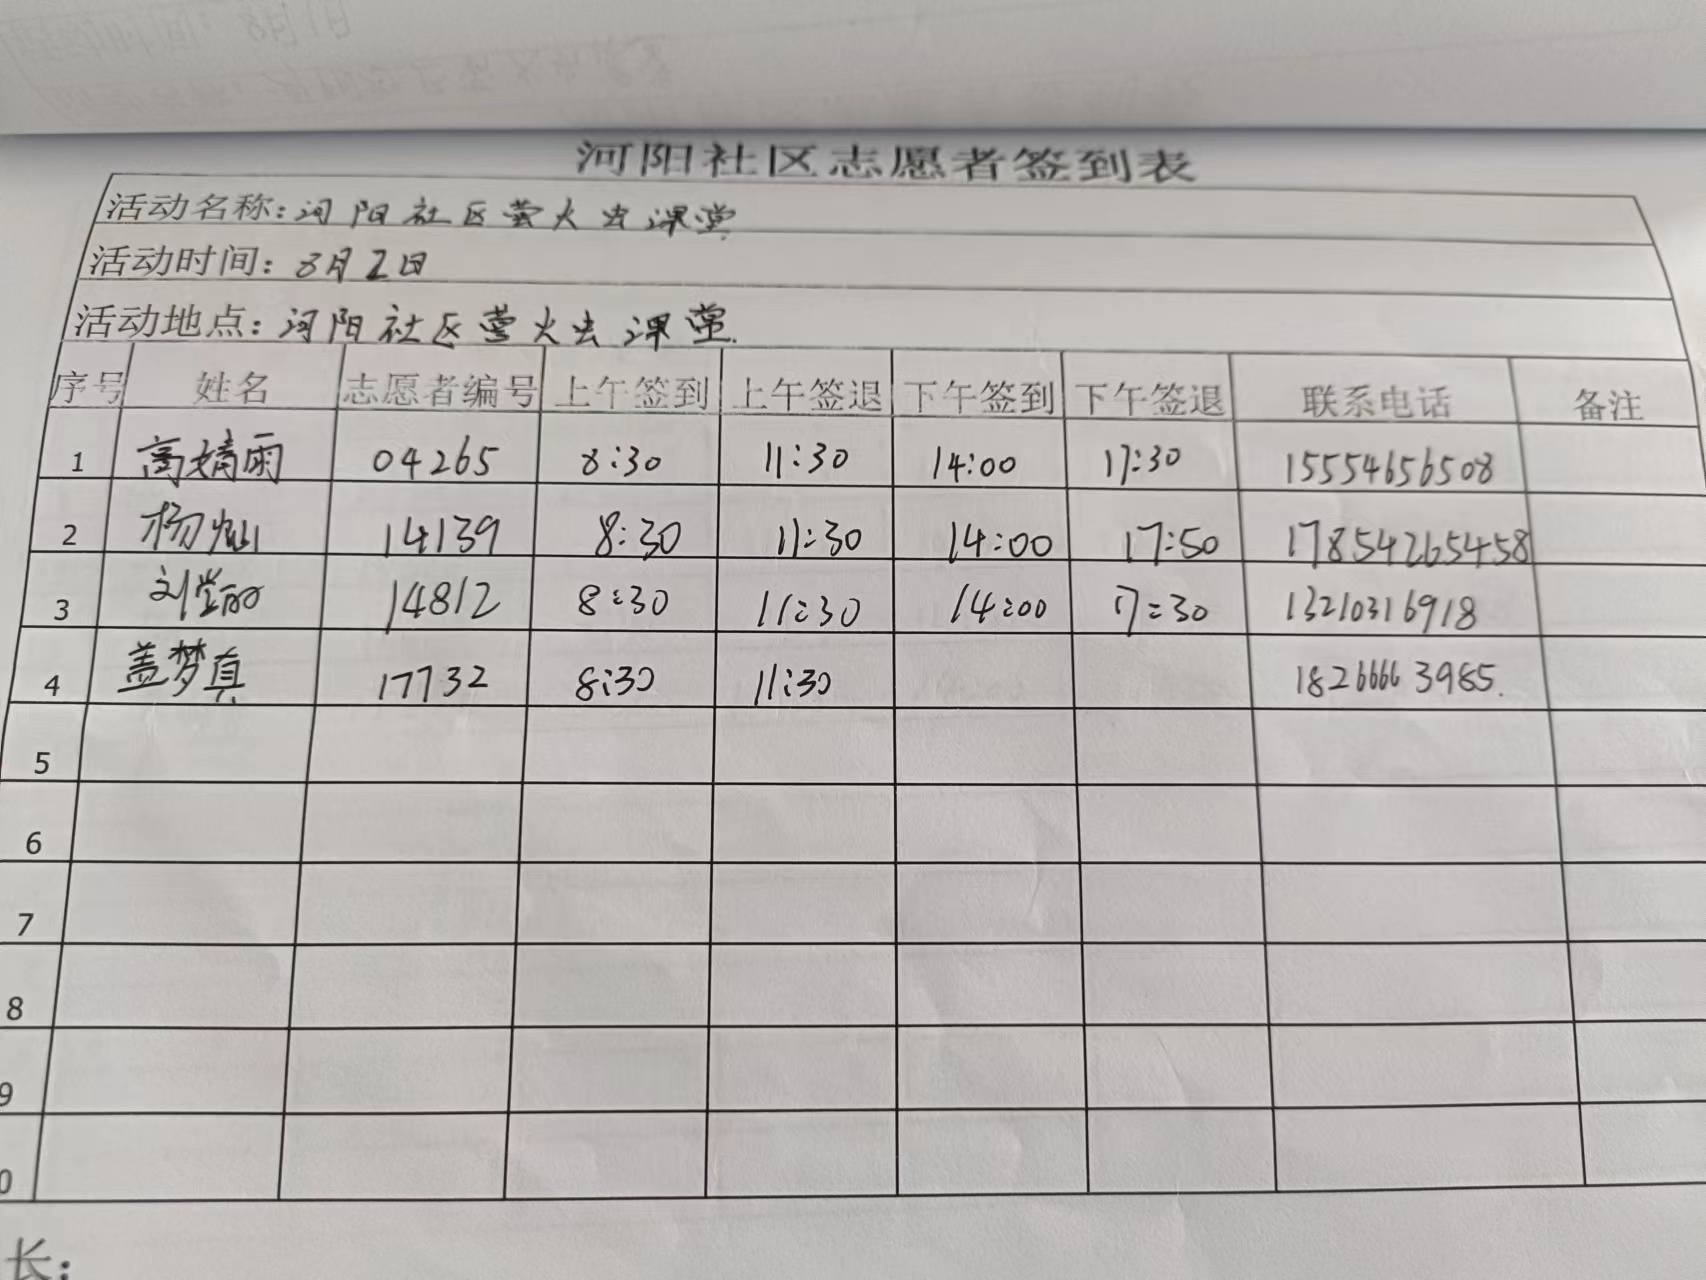 河阳社区志愿者签到表
活动名称:河阳社区萤火虫课堂
活动时间:8月2日
活动地点:河阳社区萤火虫课堂.
序号 姓名 志愿者编号 上午签到 上午签退 下午签到 下午签退 联系电话 备注
1 高婧雨 04265 8:30 11:30 14:00 17:30 15554656508
2 杨灿 14139 8:30 11:30 14:00 17:50 178542654 58
3 刘 14812 8:30 11:30 14:00 17:30 13210316918
4 盖梦真 17732 8:30 11:30 18266663985.
5
6
7
8
9
0
长: